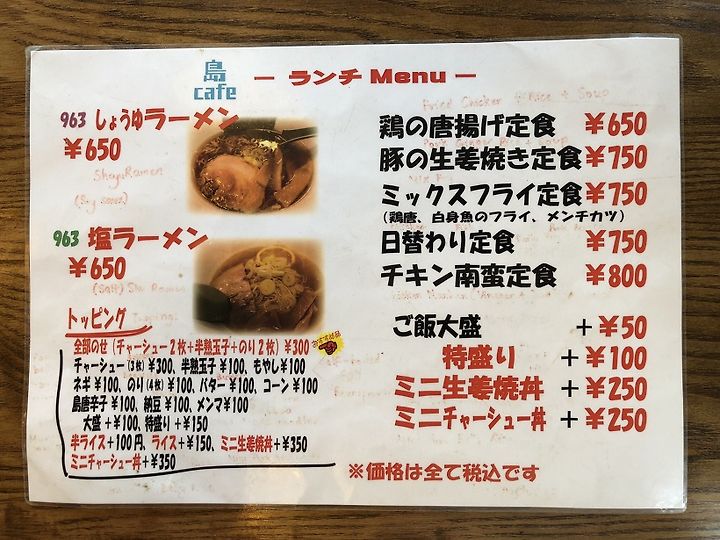 島
cafe
― ランチ Menu ―
963 しょうゆラーメン
￥650
Shoyu Ramen
(Soy sauce)
963 塩ラーメン
￥650
(Salt) Sho Ramen
トッピング
全部のせ（チャーシュー2枚+半熟玉子+のり2枚）￥300
チャーシュー(3枚)￥300、半熟玉子￥100、もやし￥100
ネギ￥100、のり(4枚)￥100、バター￥100、コーン￥100
島唐辛子￥100、納豆￥100、メンマ￥100
大盛+￥100、特盛り+￥150
半ライス+100円、ライス+￥150、ミニ生姜焼丼+￥350
ミニチャーシュー丼+￥350
Fried Chicken Rice + Soup
鶏の唐揚げ定食 ￥650
豚の生姜焼き定食 ￥750
ミックスフライ定食 ￥750
（鶏唐、白身魚のフライ、メンチカツ）
日替わり定食 ￥750
チキン南蛮定食 ￥800
ご飯大盛 +￥50
特盛り +￥100
ミニ生姜焼丼 +￥250
ミニチャーシュー丼 +￥250
※価格は全て税込です